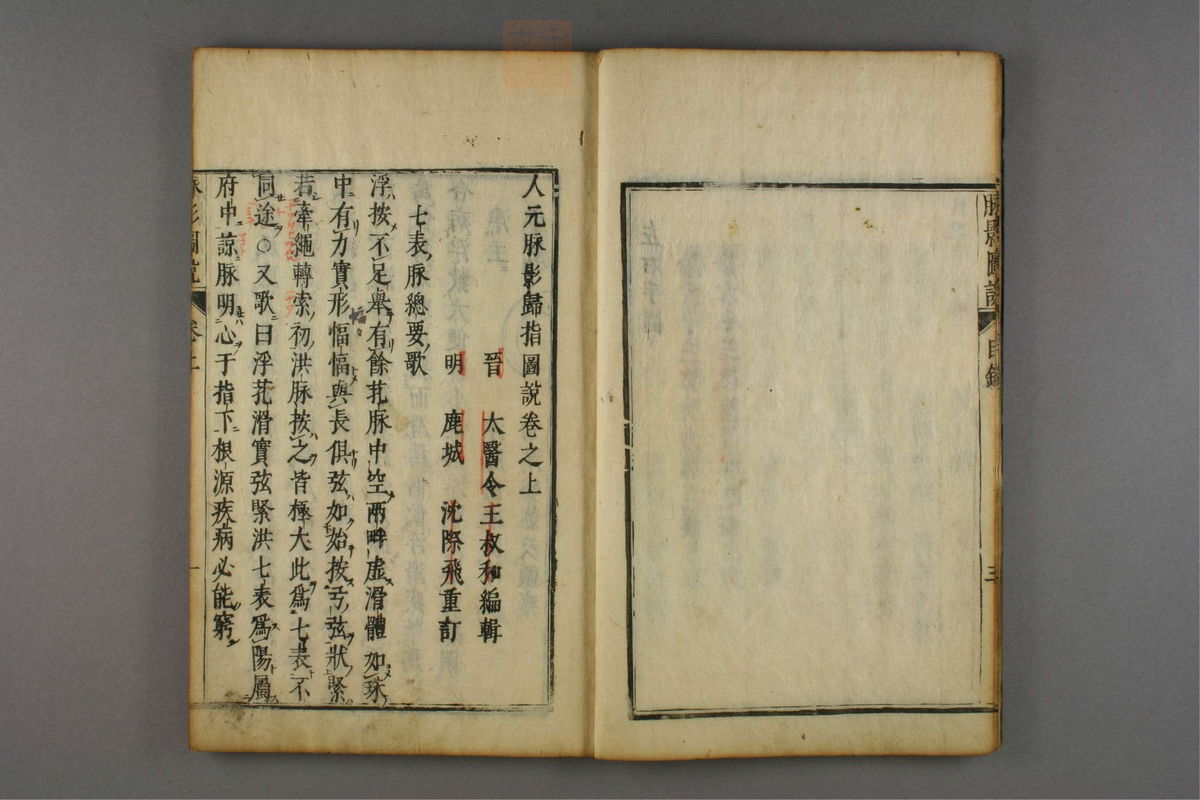 脉影圖説 目錄 三
人元脉影歸指圖說卷之上
晉 太醫令王叔和編輯
明 鹿城 沈際飛重訂
七表脉總要歌
浮按不足舉有餘芤脉中空兩畔虛滑體如珠
中有力實形愊愊與長俱弦如始按弓弦狀緊
若牽繩轉索初洪脉按之皆極大此爲七表不
同途○又歌曰浮芤滑實弦緊洪七表爲陽屬
府中諒脉明心于指下根源疾病必能窮